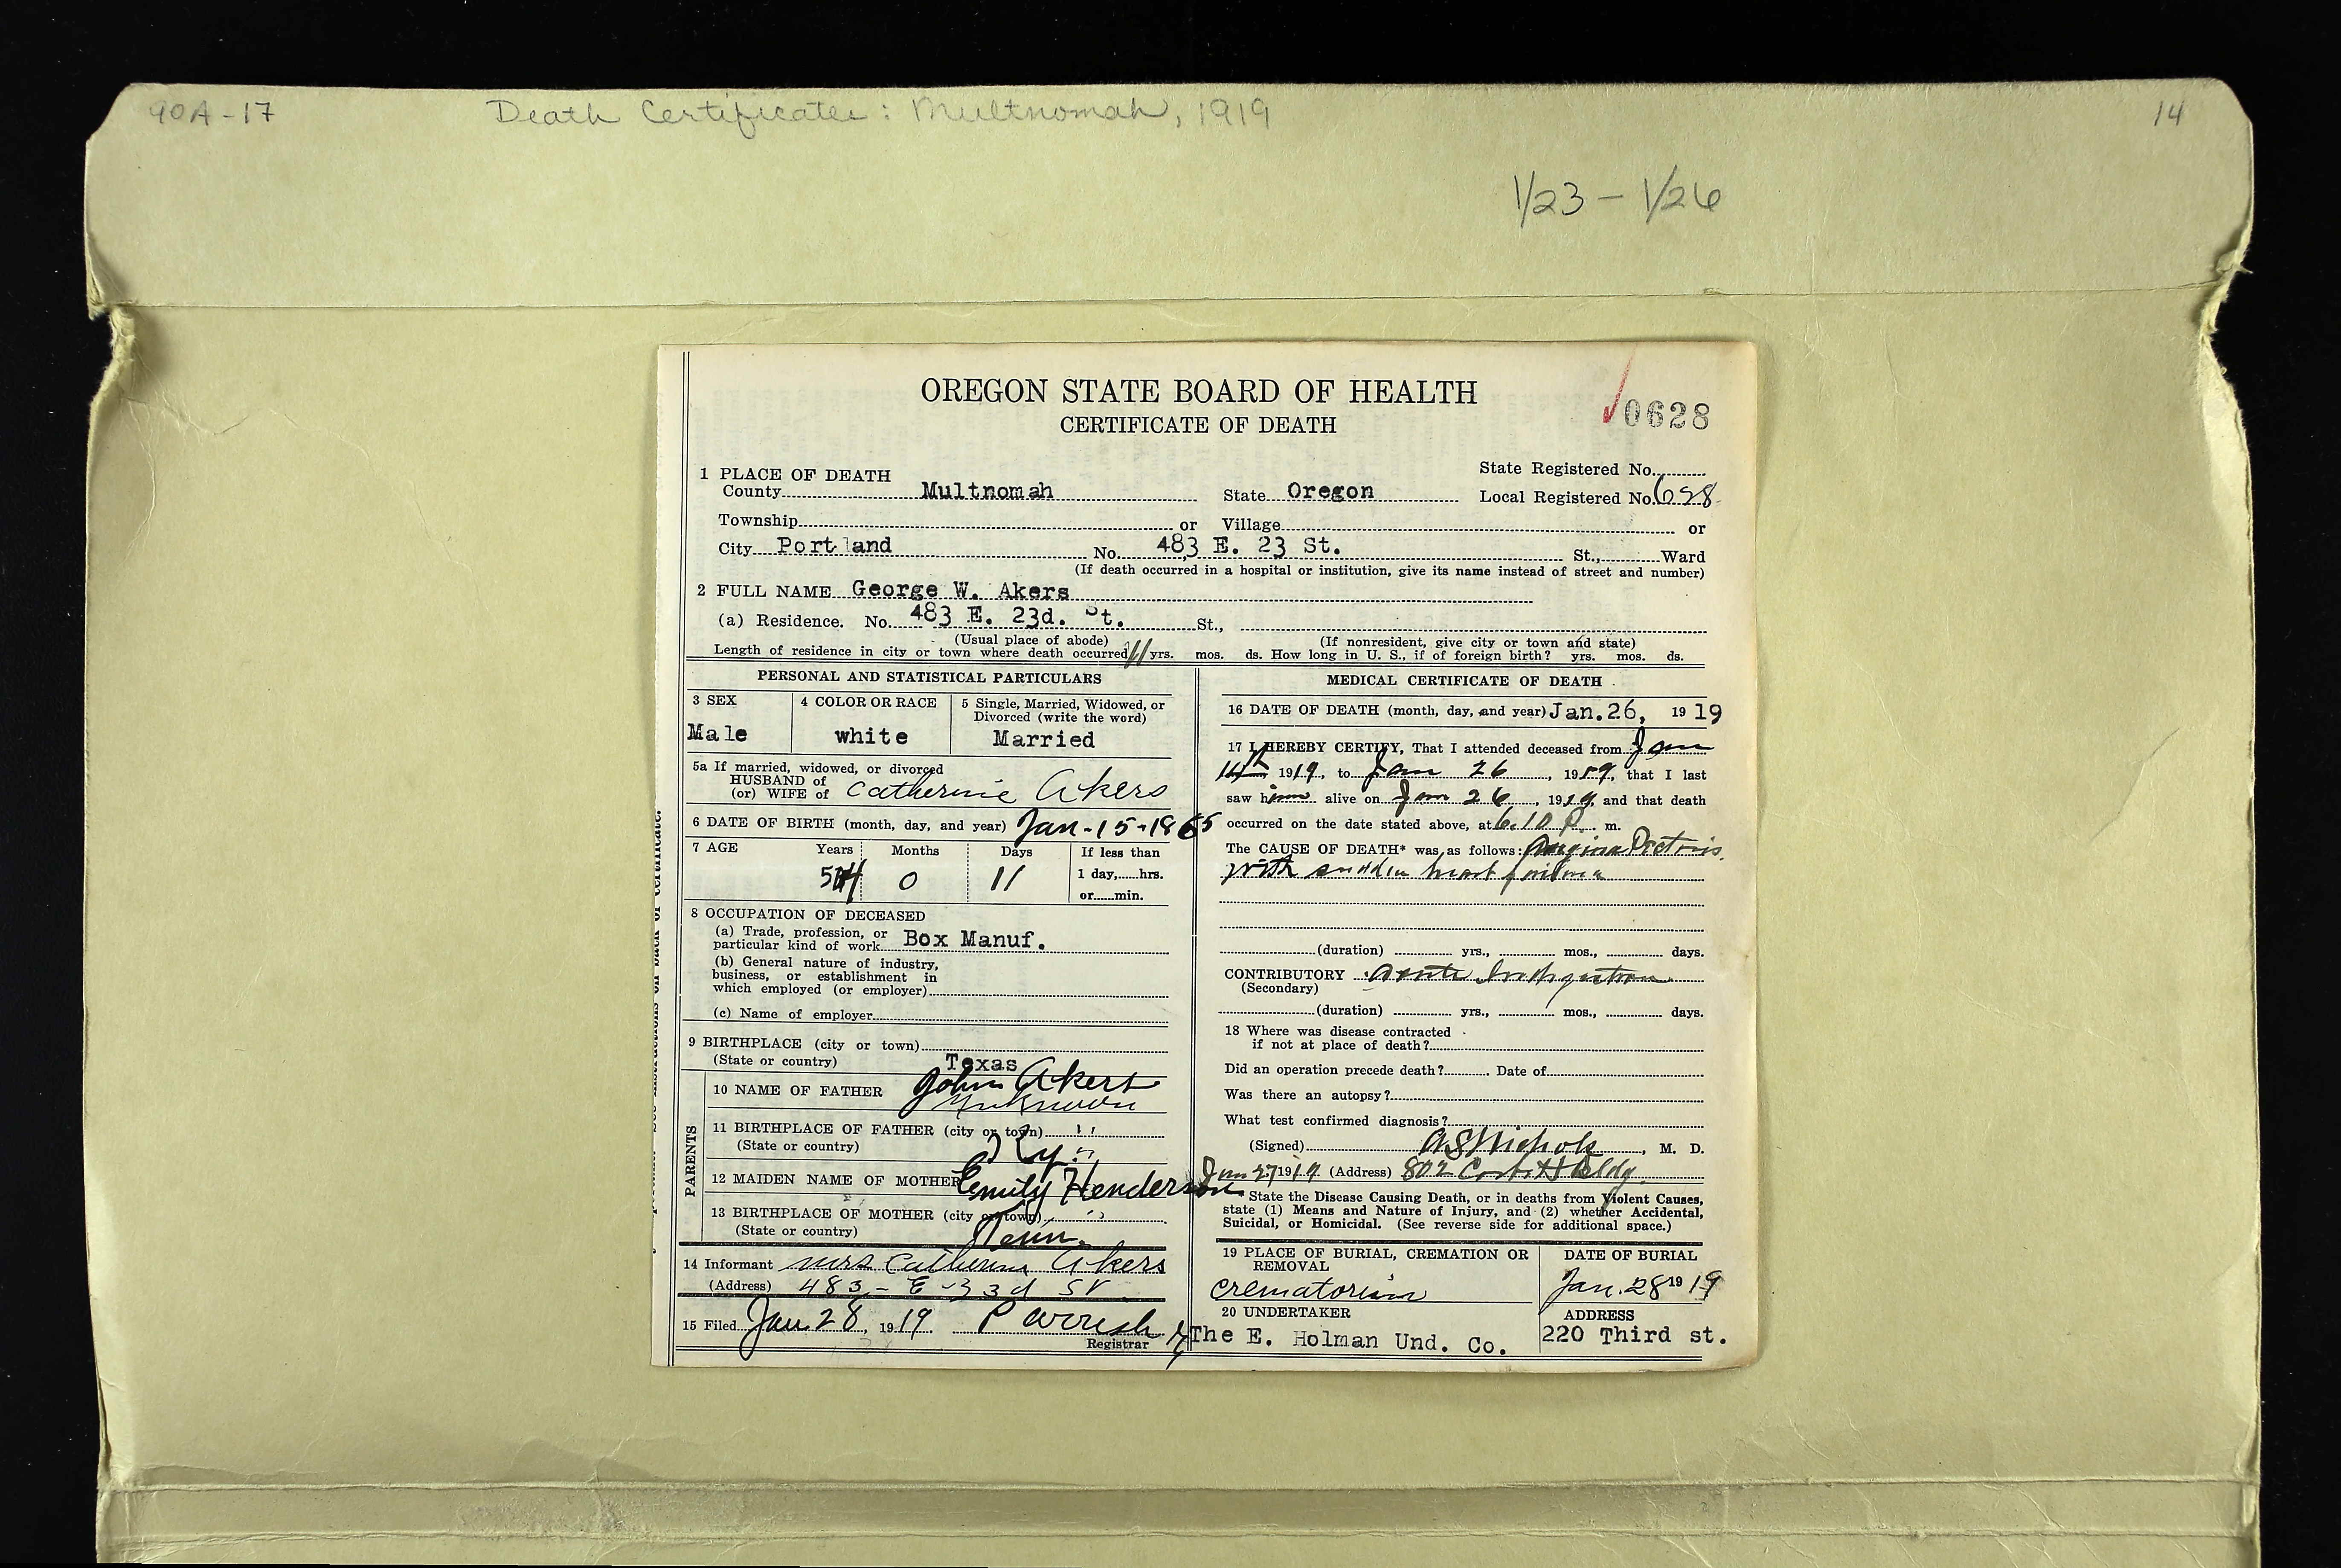 90A-17 Death Certificates: Multnomah, 1919 14
1/23 - 1/26
OREGON STATE BOARD OF HEALTH
CERTIFICATE OF DEATH
0628
1 PLACE OF DEATH
State Registered No.
County Multnomah State Oregon Local Registered No. 628
Township or Village or
City Portland No. 483 E. 23 St. St., Ward
(If death occurred in a hospital or institution, give its name instead of street and number)
2 FULL NAME George W. Akers
(a) Residence. No. 483 E. 23d. St. St.,
(Usual place of abode) (If nonresident, give city or town and state)
Length of residence in city or town where death occurred 11 yrs. mos. ds. How long in U. S., if of foreign birth? yrs. mos. ds.
PERSONAL AND STATISTICAL PARTICULARS
3 SEX
Male
4 COLOR OR RACE
white
5 Single, Married, Widowed, or
Divorced (write the word)
Married
5a If married, widowed, or divorced
HUSBAND of
(or) WIFE of Catherine Akers
6 DATE OF BIRTH (month, day, and year) Jan-15-1865
7 AGE Years Months Days If less than
54 0 11 1 day, hrs.
or min.
8 OCCUPATION OF DECEASED
(a) Trade, profession, or
particular kind of work Box Manuf.
(b) General nature of industry,
business, or establishment in
which employed (or employer)
(c) Name of employer
9 BIRTHPLACE (city or town)
(State or country) Texas
PARENTS
10 NAME OF FATHER John Akers
unknown
11 BIRTHPLACE OF FATHER (city or town) "
(State or country) Ky.
12 MAIDEN NAME OF MOTHER Emily Henderson
13 BIRTHPLACE OF MOTHER (city or town) "
(State or country) Tenn.
14 Informant Mrs Catherine Akers
(Address) 483 - E - 23d St.
15 Filed Jan. 28, 1919 Parrish
Registrar
MEDICAL CERTIFICATE OF DEATH
16 DATE OF DEATH (month, day, and year) Jan. 26, 1919
17 I HEREBY CERTIFY, That I attended deceased from Jan
14th 1919, to Jan 26, 1919, that I last
saw him alive on Jan 26, 1919, and that death
occurred on the date stated above, at 6.10 P. m.
The CAUSE OF DEATH* was as follows: Angina Pectoris
with sudden heart failure
(duration) yrs., mos., days.
CONTRIBUTORY Acute Indigestion
(Secondary)
(duration) yrs., mos., days.
18 Where was disease contracted
if not at place of death?
Did an operation precede death? Date of
Was there an autopsy?
What test confirmed diagnosis?
(Signed) A S Nichols, M. D.
Jan 27 1919 (Address) 802 Corbett Bldg.
State the Disease Causing Death, or in deaths from Violent Causes,
state (1) Means and Nature of Injury, and (2) whether Accidental,
Suicidal, or Homicidal. (See reverse side for additional space.)
19 PLACE OF BURIAL, CREMATION OR
REMOVAL
Crematorium
DATE OF BURIAL
Jan. 28 1919
20 UNDERTAKER
The E. Holman Und. Co.
ADDRESS
220 Third st.